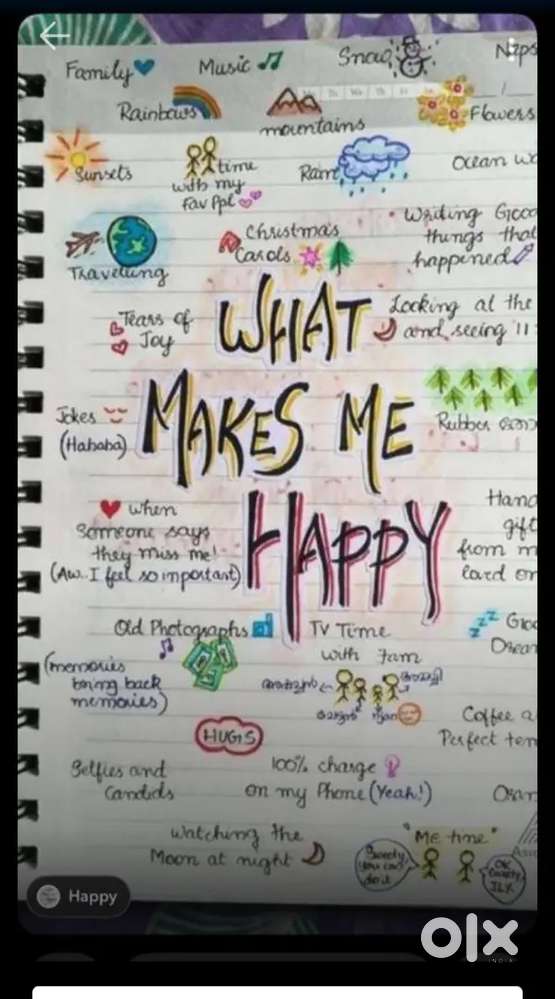 Family Music Snow Naps
Rainbows mountains Flowers
Sunsets time with my Fav Ppl Rain Ocean
Travelling Christmas Carols Writing Good things that happened
Tears of Joy WHAT Looking at the and seeing 11:
Jokes (Hahaha) MAKES ME Rubber
when
Someone says
they miss me!
(Aw.. I feel so important)
HAPPY
gift
from
Old Photographs
(memories
bring back
memories)
TV Time
with fam
HUGS
Coffee
Perfect
Selfies and
Candids
100% charge
on my Phone (Yeah!)
Watching the
Moon at night
"ME time"
you can
do it
OK
ILY
Happy
olx
INDIA